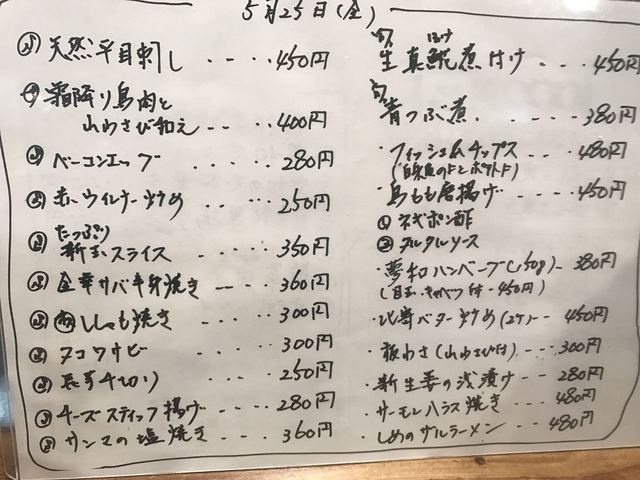 5月25日(金)
天然平目刺し 450円
霜降り鳥肉と
山わさび和え 400円
ベーコンエッグ 280円
赤ウィンナー炒め 250円
たっぷり
新玉スライス 350円
金華サバ半身焼き 360円
ししゃも焼き 300円
タコワサビ 300円
長芋千切り 250円
チーズスティック揚げ 280円
サンマの塩焼き 360円
生真ほっけ煮付け 450円
青つぶ煮 380円
フィッシュ&チップス 480円
(白身魚のフライとポテト)
鳥もも唐揚げ 450円
①ネギポン酢
②タルタルソース
夢和ハンバーグ(150g) 380円
(目玉・キャベツ付 450円)
バター炒め(2ケ) 450円
板わさ(山わさび付) 300円
新生姜の浅漬け 280円
サーモンハラス焼き 480円
しめのザルラーメン 480円